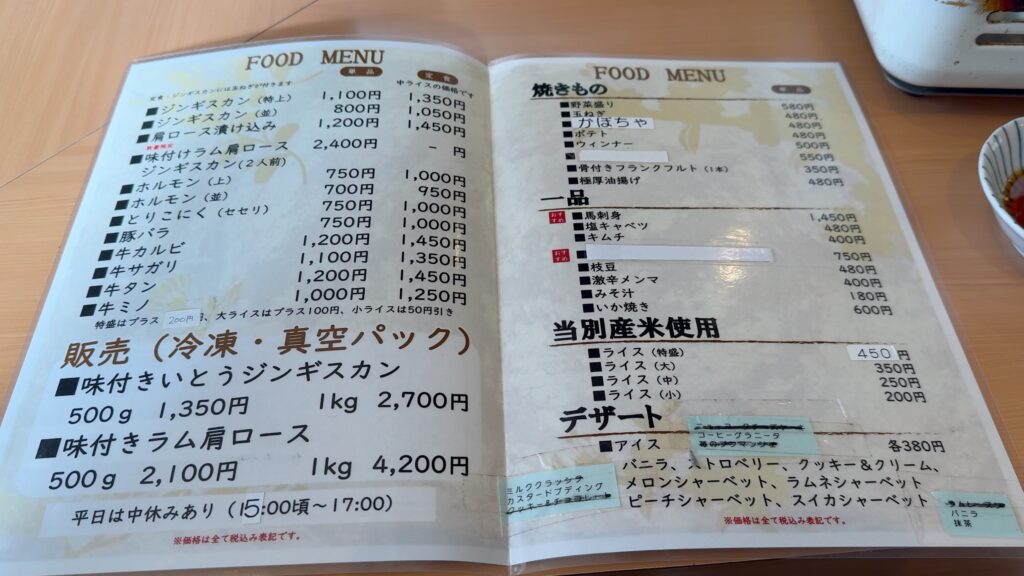 FOOD MENU
単品 定食
定食・ジンギスカンには玉ねぎが付きます 中ライスの価格です
■ジンギスカン（特上） 1,100円 1,350円
■ジンギスカン（並） 800円 1,050円
■肩ロース漬け込み 1,200円 1,450円
数量限定
■味付けラム肩ロース 2,400円 － 円
ジンギスカン（2人前）
■ホルモン（上） 750円 1,000円
■ホルモン（並） 700円 950円
■とりこにく（セセリ） 750円 1,000円
■豚バラ 750円 1,000円
■牛カルビ 1,200円 1,450円
■牛サガリ 1,100円 1,350円
■牛タン 1,200円 1,450円
■牛ミノ 1,000円 1,250円
特盛はプラス 200円 円、大ライスはプラス100円、小ライスは50円引き
販売（冷凍・真空パック）
■味付きいとうジンギスカン
500g 1,350円 1kg 2,700円
■味付きラム肩ロース
500g 2,100円 1kg 4,200円
平日は中休みあり（15:00頃～17:00）
※価格は全て税込み表記です。
FOOD MENU
焼きもの 単品
■野菜盛り 580円
■玉ねぎ 480円
■かぼちゃ 480円
■ポテト 480円
■ウィンナー 500円
550円
■骨付きフランクフルト（1本） 350円
■極厚油揚げ 480円
一品
おすすめ ■馬刺身 1,450円
■塩キャベツ 480円
■キムチ 400円
おすすめ ■ 750円
■枝豆 480円
■激辛メンマ 400円
■みそ汁 180円
■いか焼き 600円
当別産米使用
■ライス（特盛） 450円
■ライス（大） 350円
■ライス（中） 250円
■ライス（小） 200円
デザート
コーヒーグラニータ
■アイス 各380円
バニラ、ストロベリー、クッキー＆クリーム、
メロンシャーベット、ラムネシャーベット
ピーチシャーベット、スイカシャーベット
ミルククラッシュ
カスタードプディング
バニラ
抹茶
※価格は全て税込み表記です。